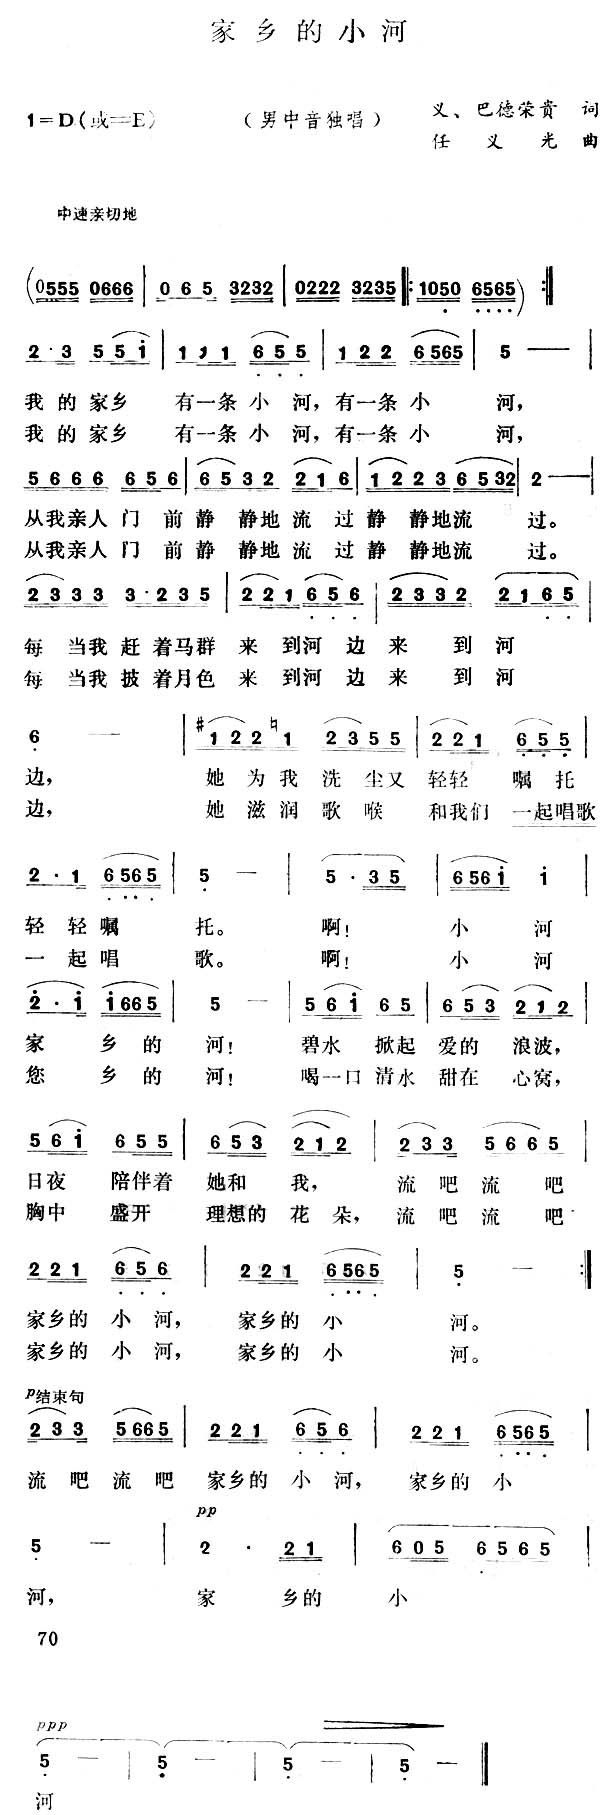 家乡的小河
1=D(或=E) (男中音独唱) 义、巴德荣贵 词
任义光 曲
中速亲切地
(0555 0666 | 065 3232 | 0222 3235 |: 1050 6565) :|
2·3 55i | 1 1 1 655 | 122 6565 | 5 — |
我的家乡 有一条小河,有一条小 河,
我的家乡 有一条小河,有一条小 河,
5666 656 | 6532 216 | 1223 6532 | 2 — |
从我亲人门前静静地流过静静地流 过。
从我亲人门前静静地流过静静地流 过。
2333 3·235 | 221 656 | 2332 2165 |
每当我赶着马群来到河边来到河
每当我披着月色来到河边来到河
6 — | #122 ♮1 2355 | 221 655 |
边, 她为我洗尘又轻轻嘱托
边, 她滋润歌喉和我们一起唱歌
2·1 6565 | 5 — | 5·35 | 656i i |
轻轻嘱 托。 啊! 小 河
一起唱 歌。 啊! 小 河
2·i i665 | 5 — | 56i 65 | 653 212 |
家 乡的 河! 碧水掀起爱的浪波,
您 乡的 河! 喝一口清水甜在心窝,
56i 655 | 653 212 | 233 5665 |
日夜 陪伴着 她和我, 流吧流吧
胸中 盛开 理想的花朵, 流吧流吧
221 656 | 221 6565 | 5 — :|
家乡的小河, 家乡的小 河。
家乡的小河, 家乡的小 河。
p结束句
233 5665 | 221 656 | 221 6565 |
流吧流吧 家乡的小河, 家乡的小
pp
5 — | 2·21 | 605 6565 |
河, 家 乡的 小
70
ppp
5 — | 5 — | 5 — | 5 — ‖
河